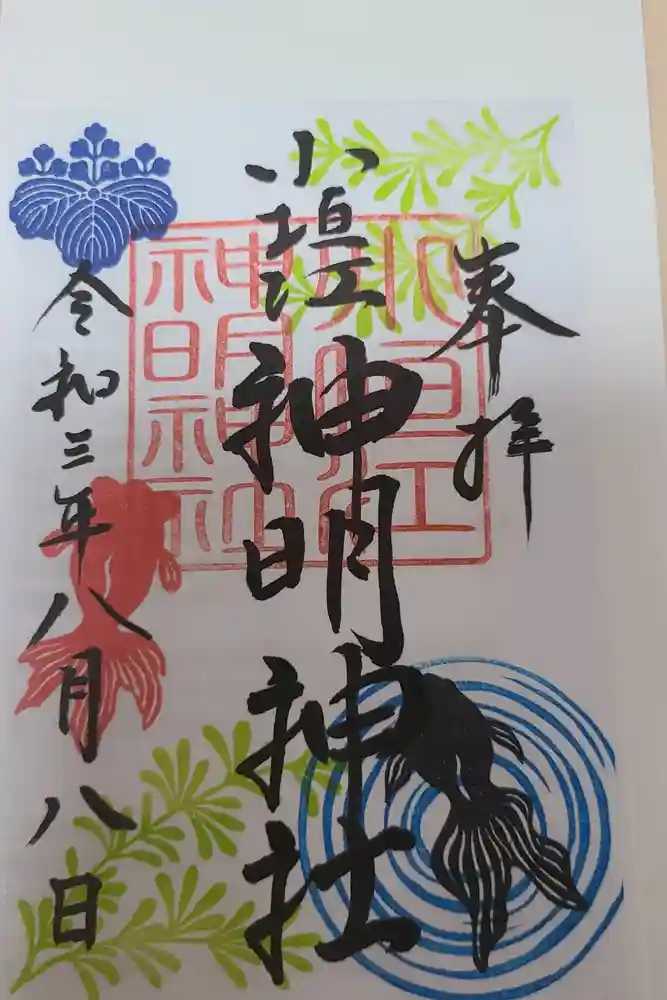 奉拝
小垣江神明神社
令和三年八月八日
小垣江
神明神社